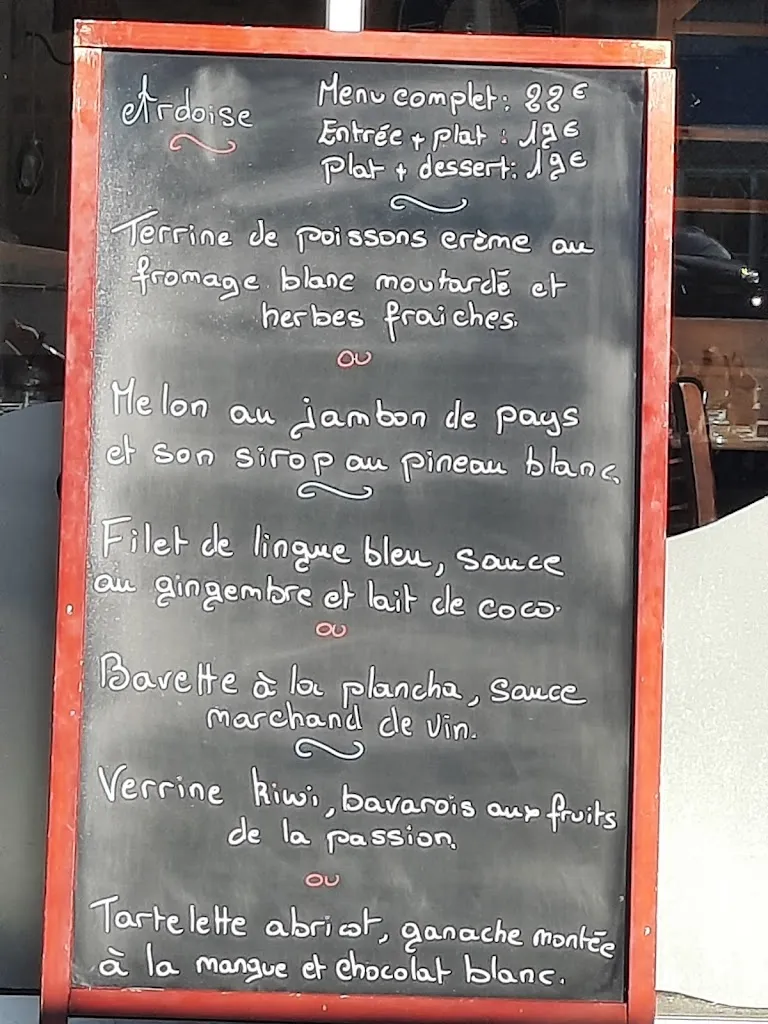 Ardoise
Menu complet : 22€
Entrée + plat : 19€
plat + dessert : 19€
Terrine de poissons crème au
fromage blanc moutarde et
herbes fraiches.
ou
Melon au jambon de pays
et son sirop au pineau blanc
Filet de lingue bleu, sauce
au gingembre et lait de coco.
ou
Bavette à la plancha, sauce
marchand de vin.
Verrine kiwi, bavarois aux fruits
de la passion.
ou
Tartelette abricot, ganache montée
à la mangue et chocolat blanc.